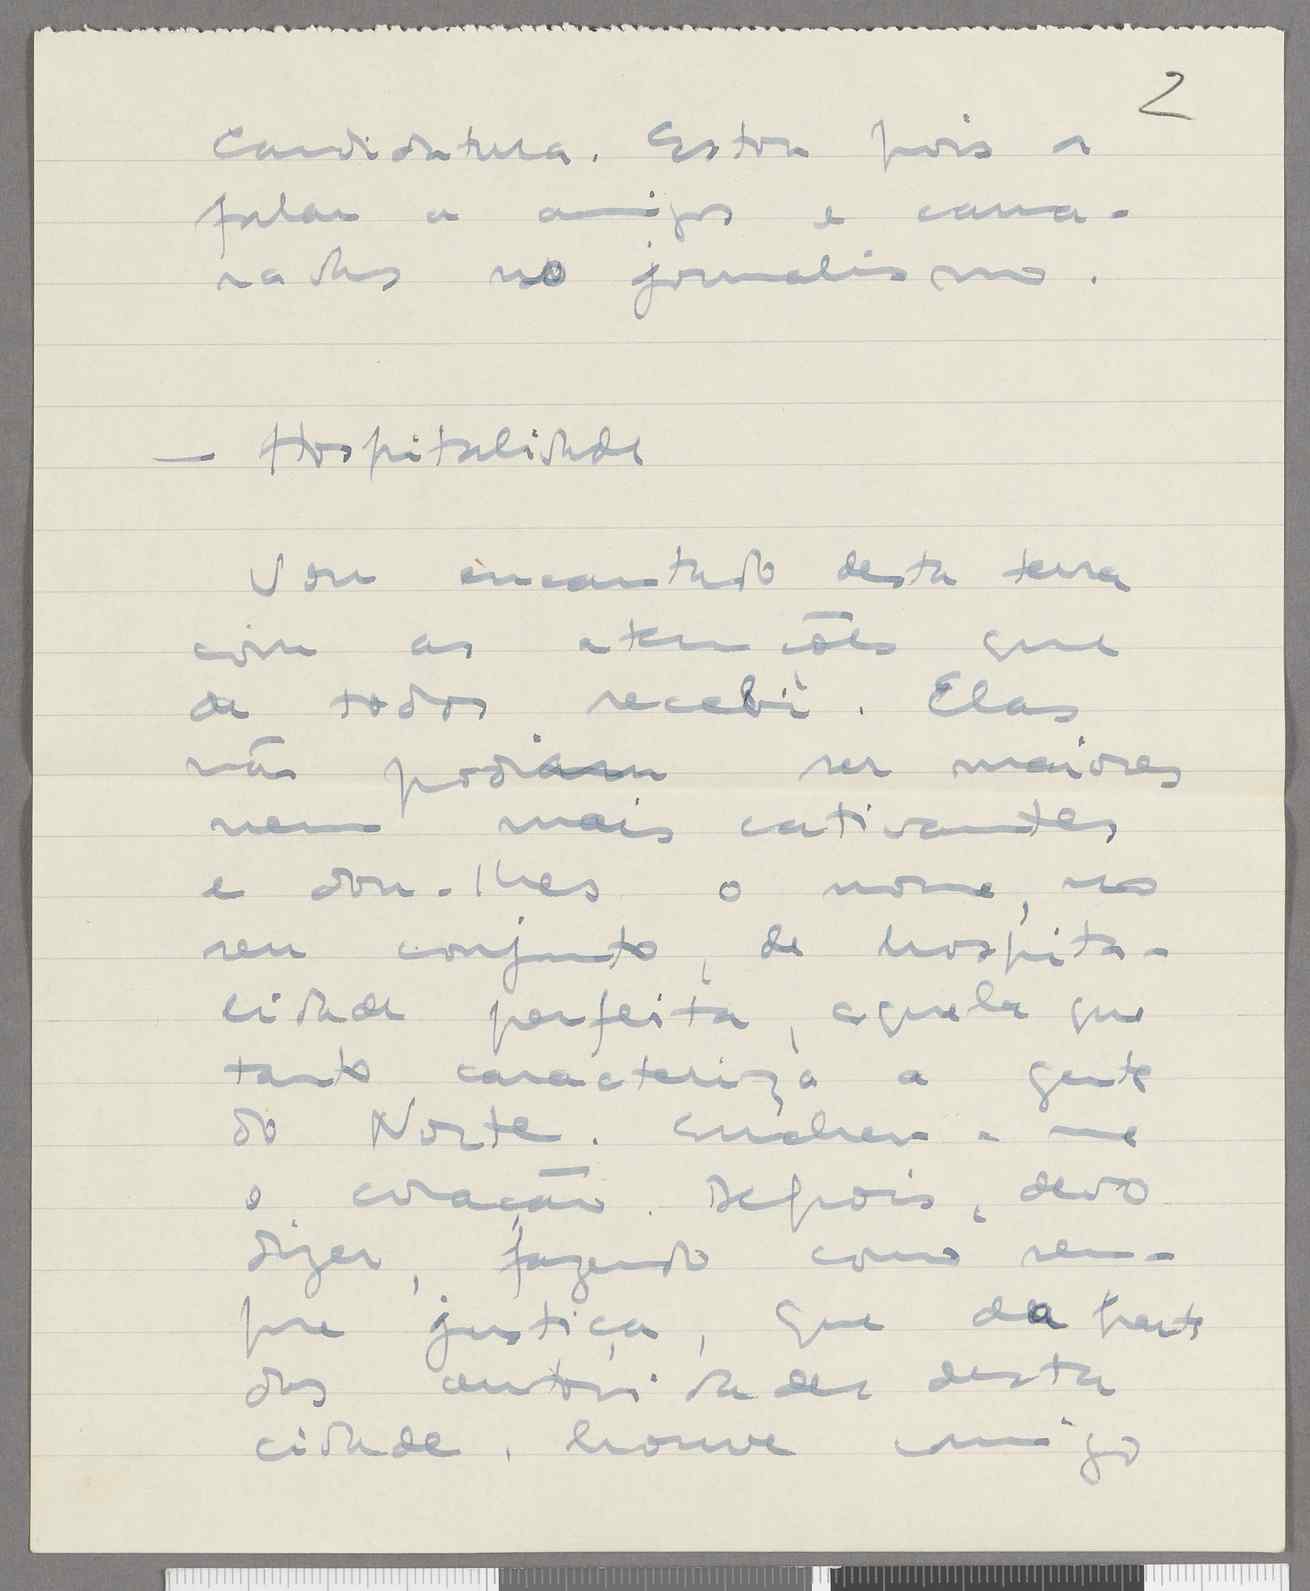 2
Candidatura. Estou pois a
falar a amigos e cama-
radas no jornalismo.
— Hospitalidade
Vou encantado desta terra
com as atenções que
de todos recebi. Elas
não podiam ser maiores
nem mais cativantes
e dou-lhes o nome, no
seu conjunto, de hospita-
lidade perfeita, aquela que
tanto caracteriza a gente
do Norte. Encheu-me
o coração. Depois, devo
dizer, fazendo como sem-
pre justiça, que da parte
das autoridades desta
cidade, houve comigo